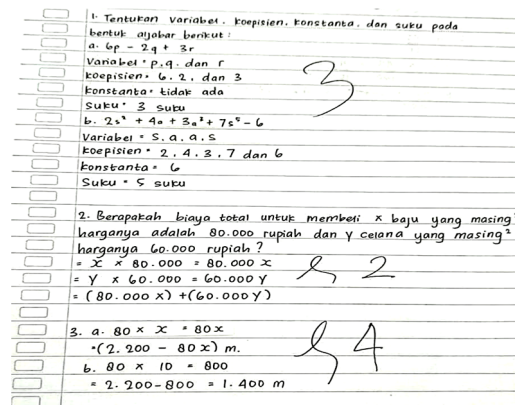 1. Tentukan variabel, koepisien, konstanta, dan suku pada
bentuk aljabar berikut :
a. 6p - 2q + 3r
Variabel = p, q, dan r
koepisien = 6, 2, dan 3
konstanta = tidak ada
Suku = 3 suku
3
b. 2s² + 4a + 3a² + 7s⁵ - 6
Variabel = s, a, a, s
koepisien = 2, 4, 3, 7 dan 6
konstanta = 6
Suku = 5 suku
2. Berapakah biaya total untuk membeli x baju yang masing²
harganya adalah 80.000 rupiah dan y celana yang masing²
harganya 60.000 rupiah ?
= x × 80.000 = 80.000 x
= y × 60.000 = 60.000 y
2
= (80.000 x) + (60.000 y)
3. a. 80 × x = 80x
= (2.200 - 80x) m.
4
b. 80 × 10 = 800
= 2.200 - 800 = 1.400 m